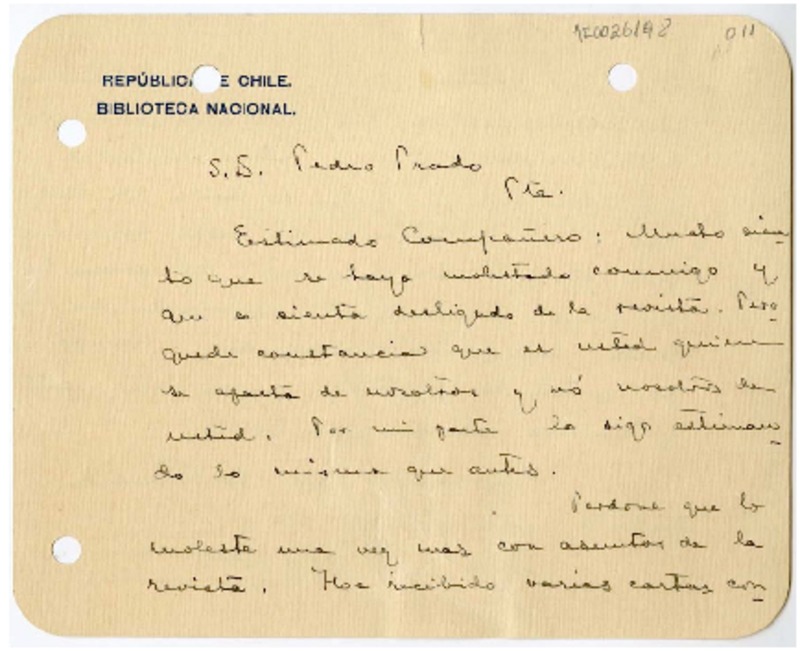 AE0026198 011
REPÚBLICA DE CHILE.
BIBLIOTECA NACIONAL.
S. D. Pedro Prado
Pte.
Estimado Compañero: Mucho sien-
to que se haya molestado conmigo y
que se sienta desligado de la revista. Pero
quede constancia que es usted quien
se aparta de nosotros y nó nosotros de
usted. Por mi parte lo sigo estiman-
do lo mismo que antes.
Perdone que lo
moleste una vez mas con asuntos de la
revista. He recibido varias cartas con-